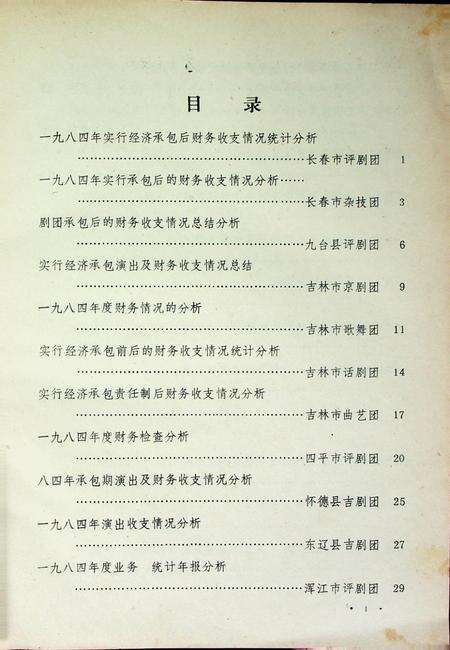 目 录
一九八四年实行经济承包后财务收支情况统计分析
……………………………………长春市评剧团 1
一九八四年实行承包后的财务收支情况分析……
……………………………………长春市杂技团 3
剧团承包后的财务收支情况总结分析
……………………………………九台县评剧团 6
实行经济承包演出及财务收支情况总结
……………………………………吉林市京剧团 9
一九八四年度财务情况的分析
……………………………………吉林市歌舞团 11
实行经济承包前后的财务收支情况统计分析
……………………………………吉林市话剧团 14
实行经济承包责任制后财务收支情况分析
……………………………………吉林市曲艺团 17
一九八四年度财务检查分析
……………………………………四平市评剧团 20
八四年承包期演出及财务收支情况分析
……………………………………怀德县吉剧团 25
一九八四年演出收支情况分析
……………………………………东辽县吉剧团 27
一九八四年度业务 统计年报分析
……………………………………浑江市评剧团 29
• 1 •